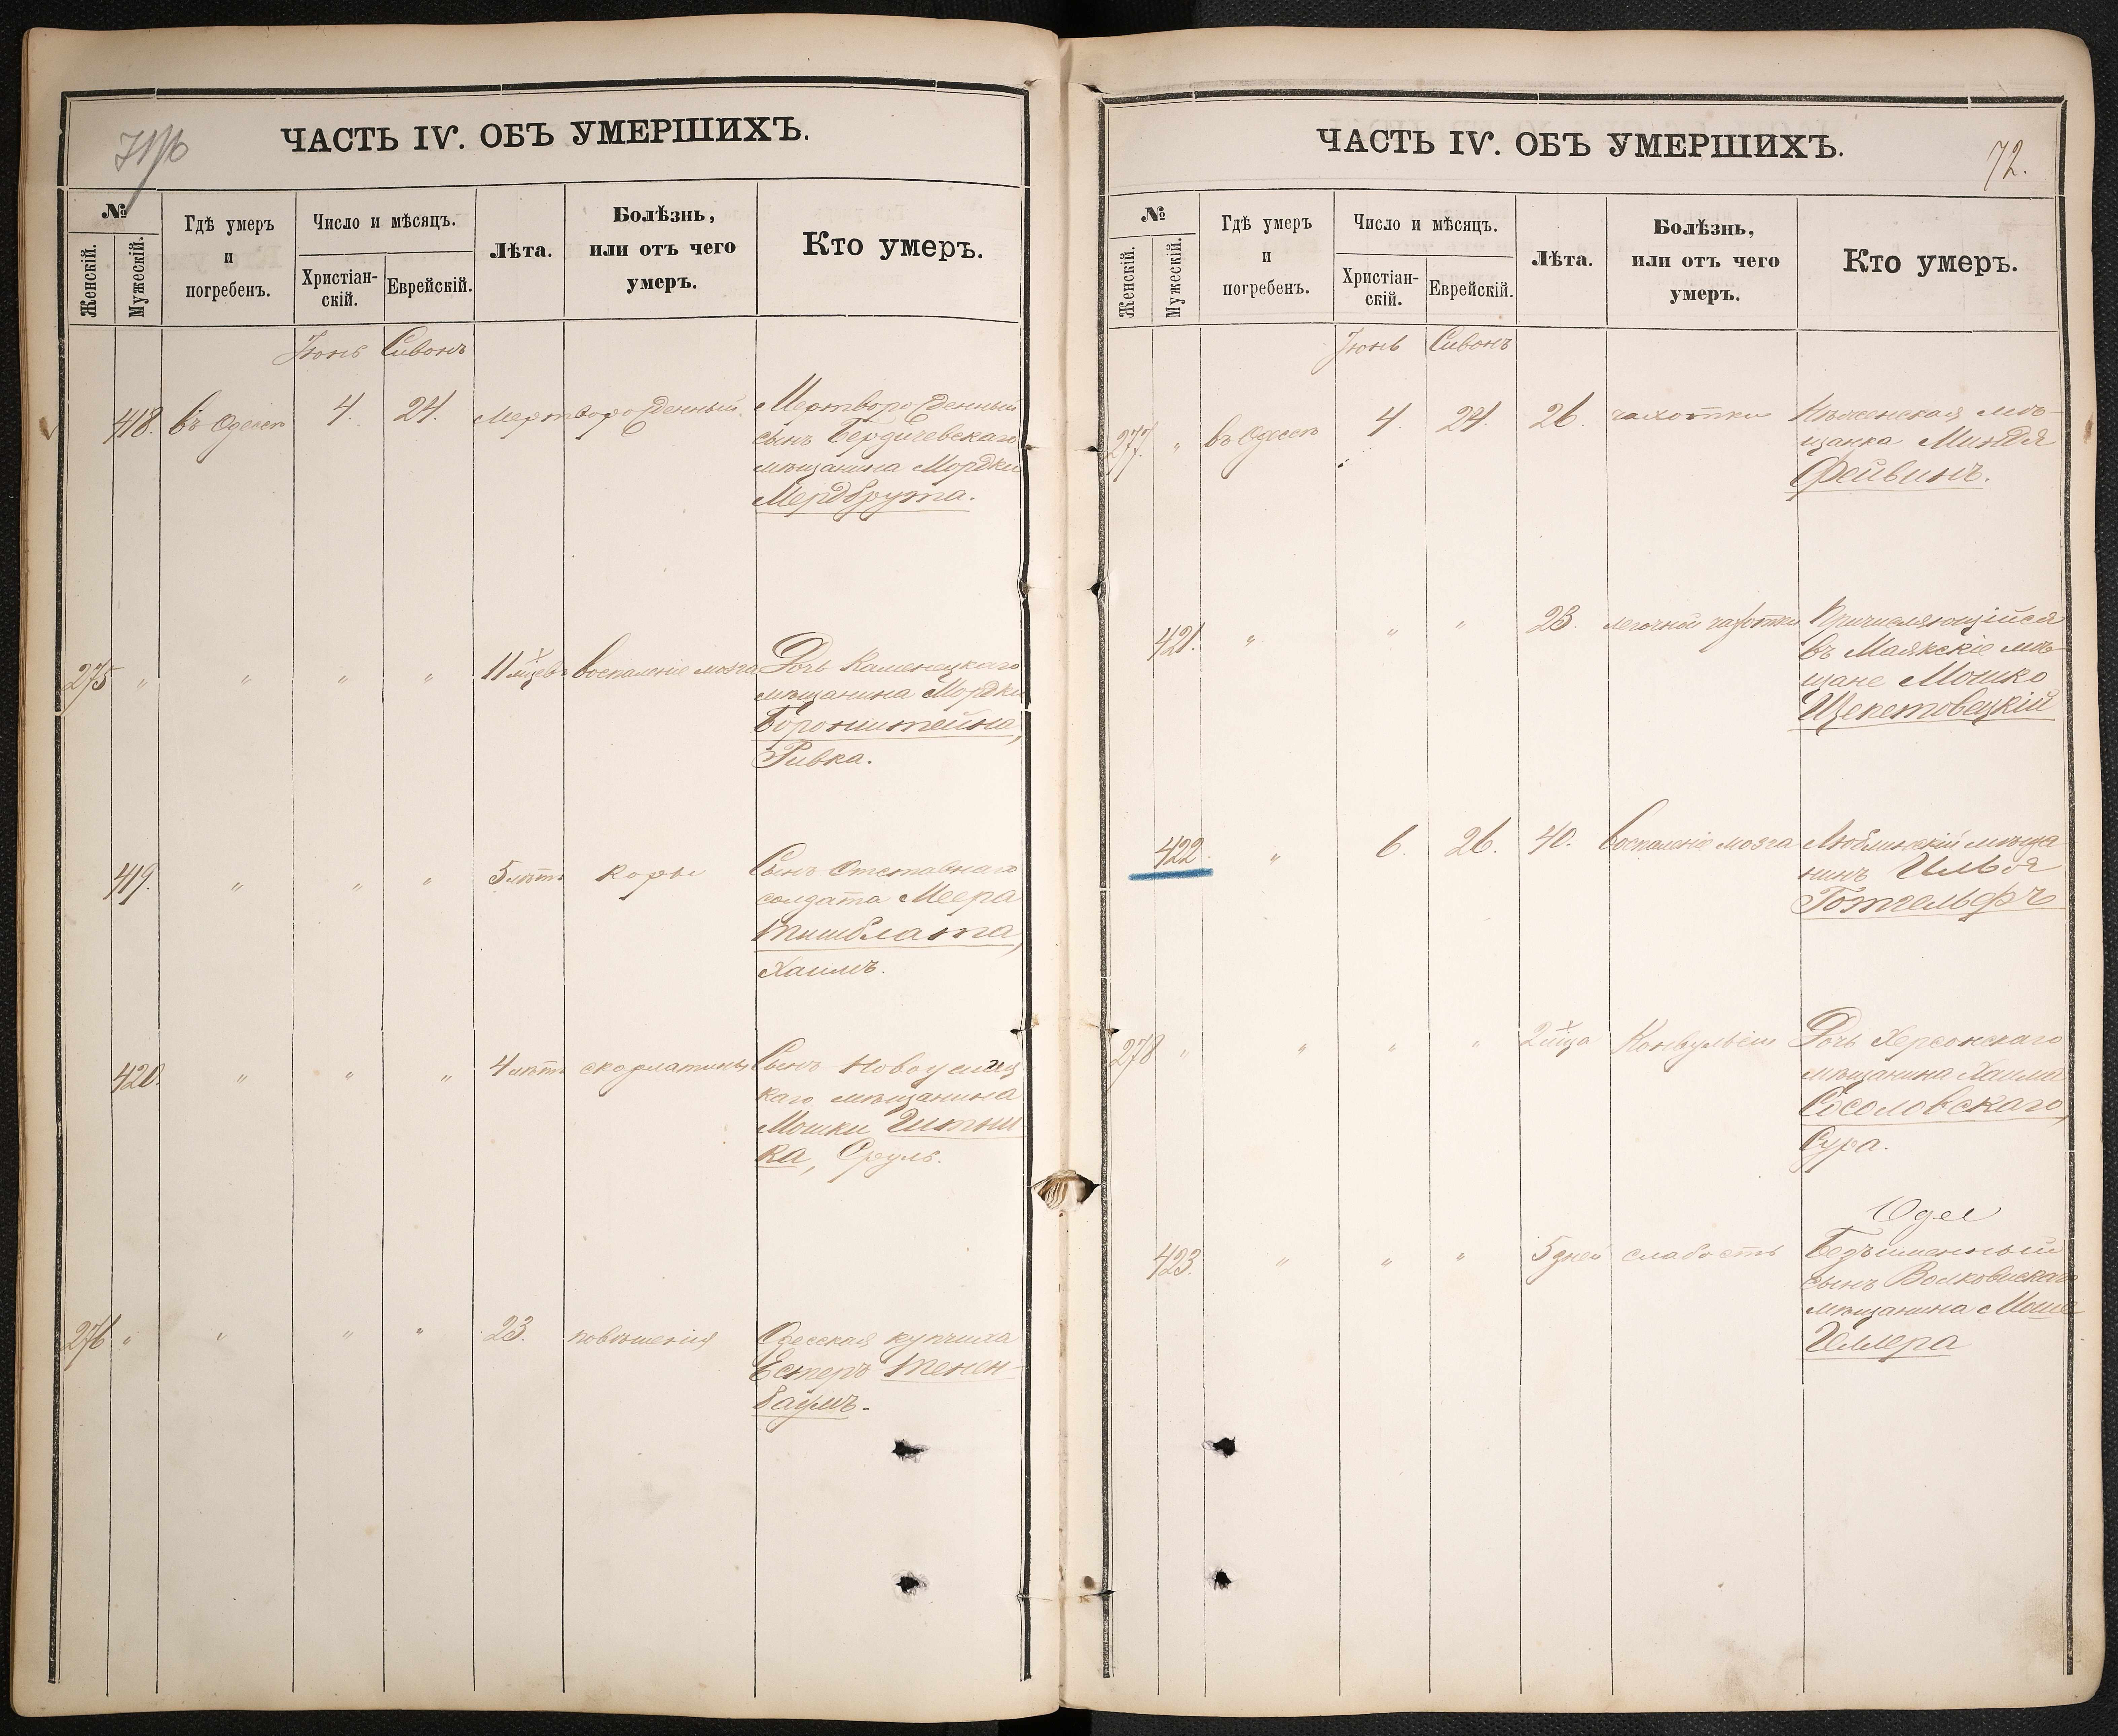 71/б
ЧАСТЬ IV. ОБЪ УМЕРШИХЪ.
№
Женскій.
Мужескій.
Гдѣ умеръ
и
погребенъ.
Число и мѣсяцъ.
Христіан-
скій.
Еврейскій.
Лѣта.
Болѣзнь,
или отъ чего
умеръ.
Кто умеръ.
Іюнь Сивонъ
418. въ Одессѣ 4. 24. Мертворожденный
Мертворожденный
сынъ Бердичевскаго
мѣщанина Мордки
Мердбрута.
275 " " " " 11 мцевъ воспаленіе мозга
Дочь Каменецкаго
мѣщанина Мордки
Боронштейна,
Ривка.
419. " " " 5 лѣтъ коры
Сынъ отставнаго
солдата Меера
Тишблата,
Хаимъ.
420. " " " 4 лѣтъ скорлатины
Сынъ Новоушиц
каго мѣщанина
Мошки Гитни
ка, Сруль.
276 " " " " 23. повѣшенія
Одесская купчиха
Естеръ Тенен-
баумъ.
ЧАСТЬ IV. ОБЪ УМЕРШИХЪ.
72.
№
Женскій.
Мужескій.
Гдѣ умеръ
и
погребенъ.
Число и мѣсяцъ.
Христіан-
скій.
Еврейскій.
Лѣта.
Болѣзнь,
или отъ чего
умеръ.
Кто умеръ.
Іюнь Сивонъ
277. " въ Одессѣ 4. 24. 26. чахотки
Нѣженская мѣ-
щанка Миндля
Фейвинъ.
421. " " " 23. легочной чахотки
Причисляющійся
въ Маякскіе мѣ
щане Мошко
Щекетовецкій
422. " 6. 26. 40. воспаленіе мозга
Люблинскій мѣща
нинъ Илья
Готгельфъ
278 " " " " 2 мца Конвульсіи
Дочь Херсонскаго
мѣщанина Хаима
Сосоловскаго,
Сура.
423. " " " 5 дней слабость
Безъименный
сынъ Волковискаго
мѣщанина Моше
Геллера